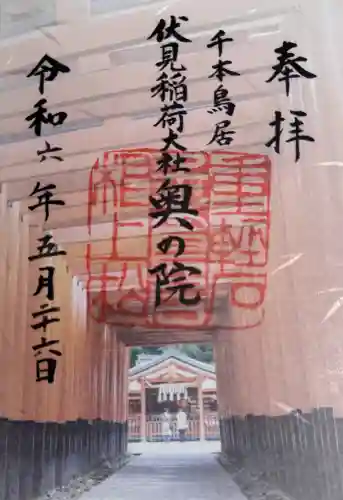 奉拝
千本鳥居
伏見稲荷大社奥の院
令和六年五月二十六日